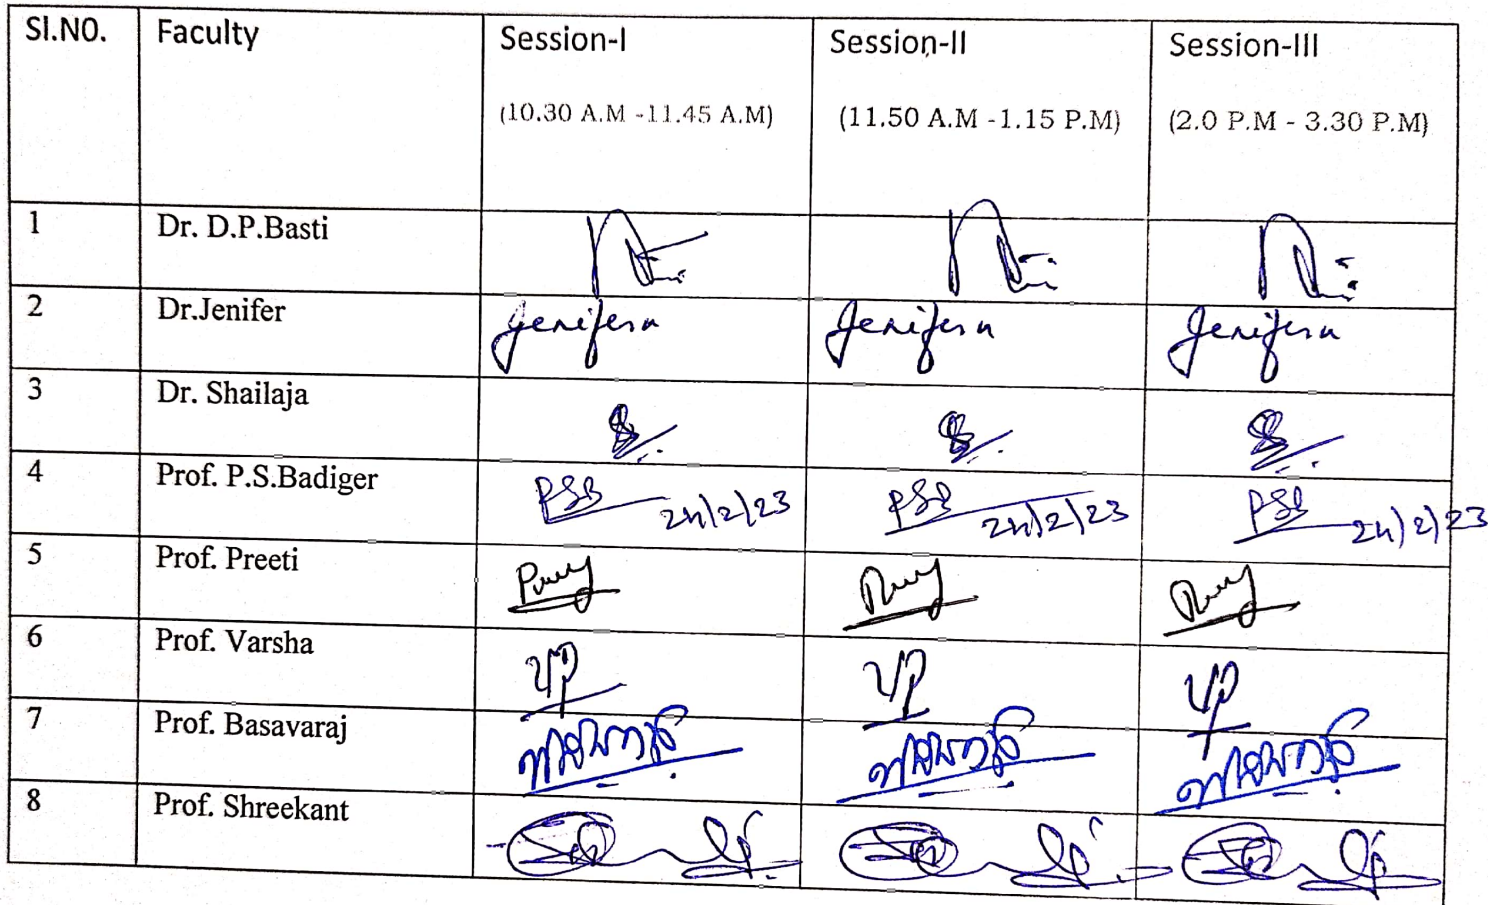 Sl.NO. Faculty Session-I Session-II Session-III
(10.30 A.M -11.45 A.M) (11.50 A.M -1.15 P.M) (2.0 P.M - 3.30 P.M)
1 Dr. D.P.Basti
2 Dr.Jenifer Jenifera Jenifera Jenifera
3 Dr. Shailaja
4 Prof. P.S.Badiger PSB 24/2/23 PSB 24/2/23 PSB 24/2/23
5 Prof. Preeti
6 Prof. Varsha VP VP VP
7 Prof. Basavaraj
8 Prof. Shreekant